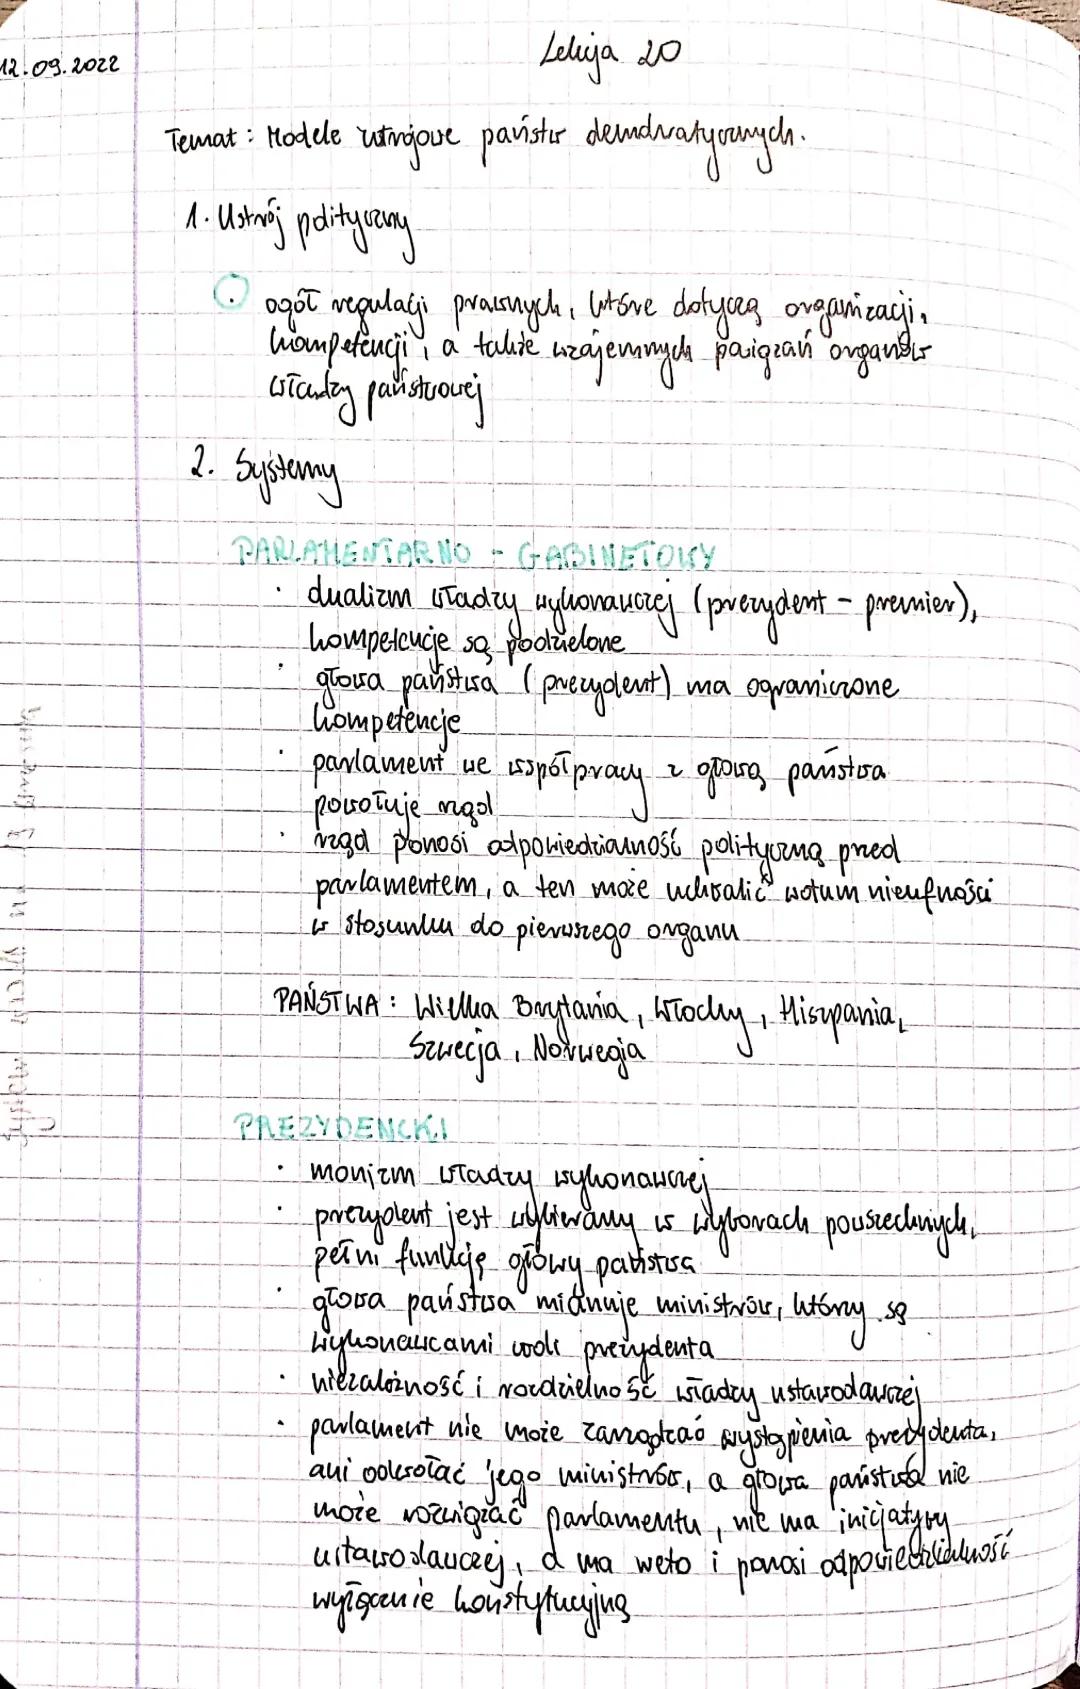 12.09.2022
Lekcja 20
Temat: Modele ustrojowe państw demokratycznych.
1. Ustrój polityczny
ogół regulacji prawnych, które dotyczą organizacji,
kompetencji, a także wzajemnych powiązań organów
władzy państwowej
2. Systemy
PARLAMENTARNO - GABINETOWY
• dualizm władzy wykonawczej (prezydent - premier),
kompetencje są podzielone
• głowa państwa (prezydent) ma ograniczone
kompetencje
• parlament we współpracy z głową państwa
powołuje rząd
• rząd ponosi odpowiedzialność polityczną przed
parlamentem, a ten może uchwalić wotum nieufności
w stosunku do pierwszego organu
PAŃSTWA: Wielka Brytania, Włochy, Hiszpania,
Szwecja, Norwegia
PREZYDENCKI
• monizm władzy wykonawczej
• prezydent jest wybierany w wyborach powszechnych,
pełni funkcję głowy państwa
• głowa państwa mianuje ministrów, którzy są
wykonawcami woli prezydenta
• niezależność i rozdzielność władzy ustawodawczej
• parlament nie może zarządzać wystąpienia prezydenta,
ani odwołać jego ministrów, a głowa państwa nie
może rozwiązać parlamentu, nie ma inicjatywy
ustawodawczej, a ma weto i ponosi odpowiedzialność
wyłącznie konstytucyjną